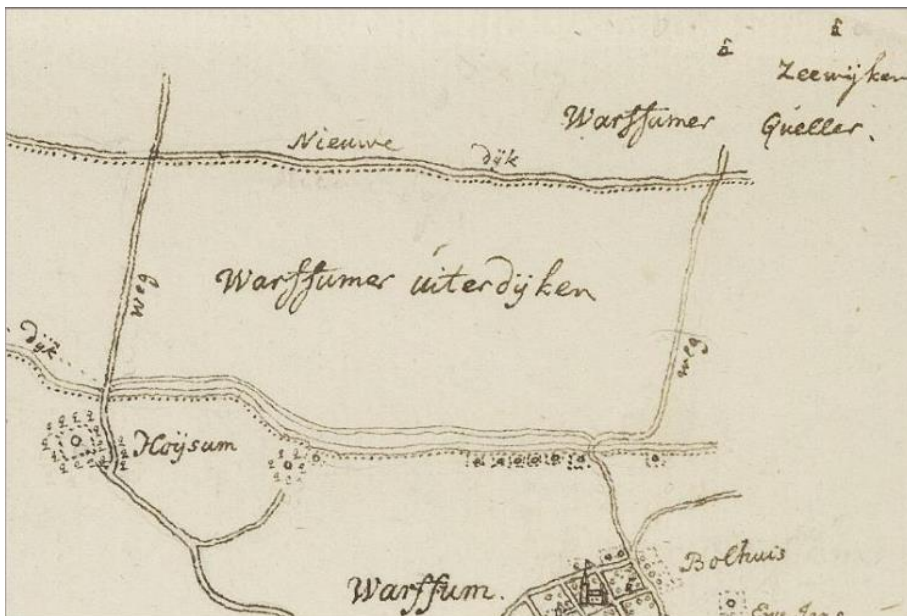 Zeewijken
Warffumer Queller.
Nieuwe dijk
Warffumer uiterdijken
weg
weg
dijk
Hoysum
Bolhuis
Warffum.